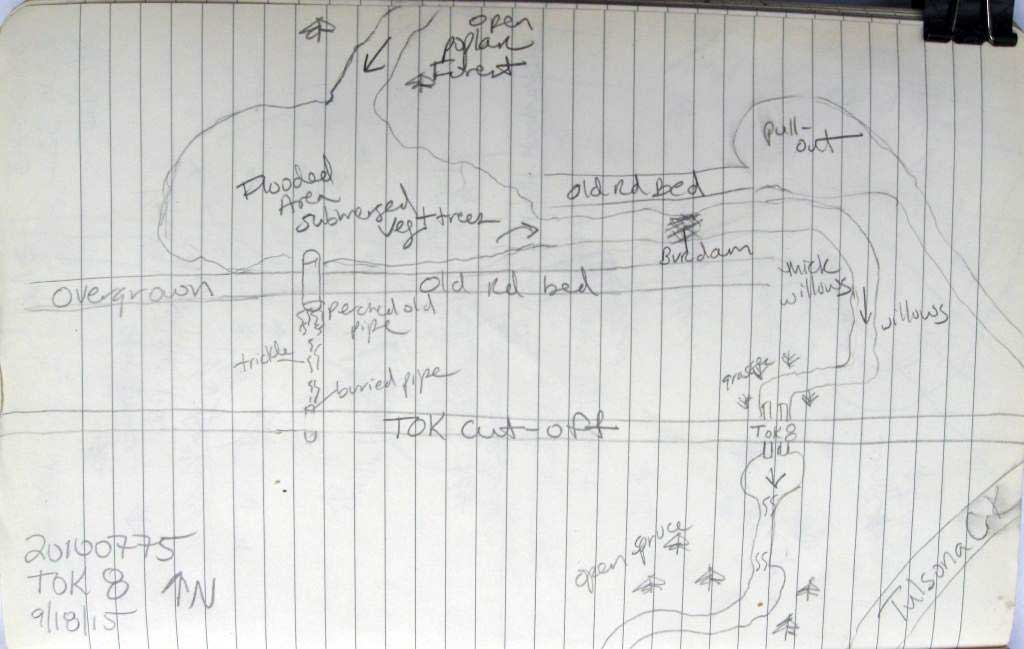 open
poplar
Forest
pull-
out
Flooded
Area
submerged
veg + trees
old Rd Bed
Bvr dam
thick
willows
willows
overgrown
old rd bed
perched old
pipe
trickle
buried pipe
grasses
TOK cut-off
TOK 8
open spruce
Tulsona Ck
20140775
TOK 8
N
9/18/15